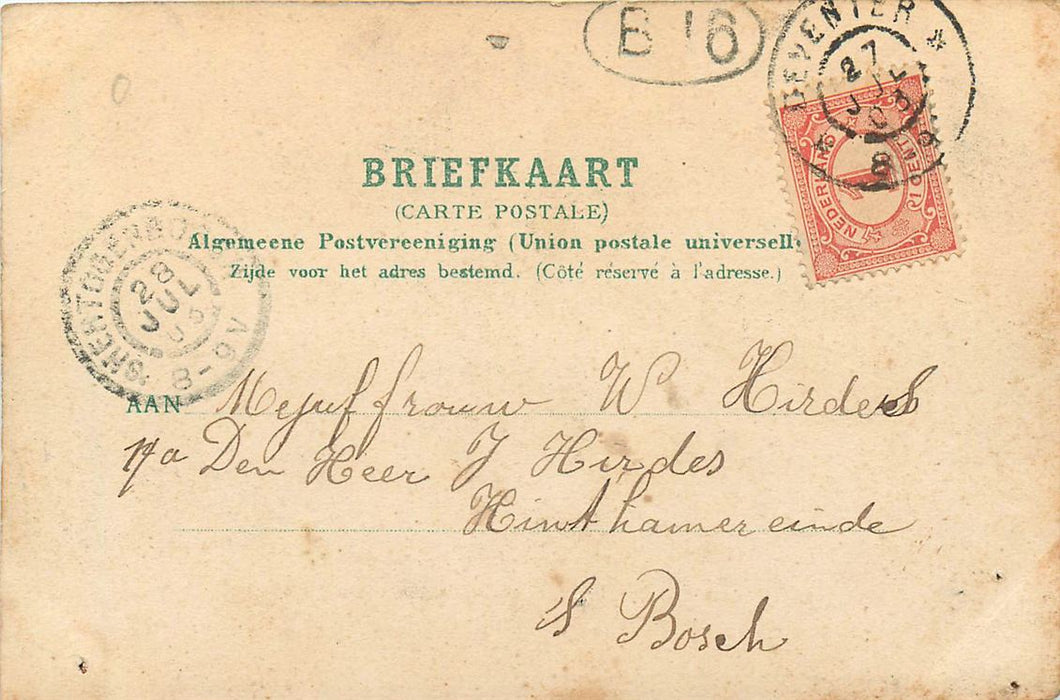 B 16
DEVENTER
27 JUL
8
NEDERLAND
1 CENT
1
BRIEFKAART
(CARTE POSTALE)
Algemeene Postvereeniging (Union postale universelle
Zijde voor het adres bestemd. (Côté réservé à l'adresse.)
'SHERTOGENBO
28 JUL 05
8-9V
AAN Mejuffrouw W Hirdes
p/a Den Heer J Hirdes
Hinthamereinde
s Bosch